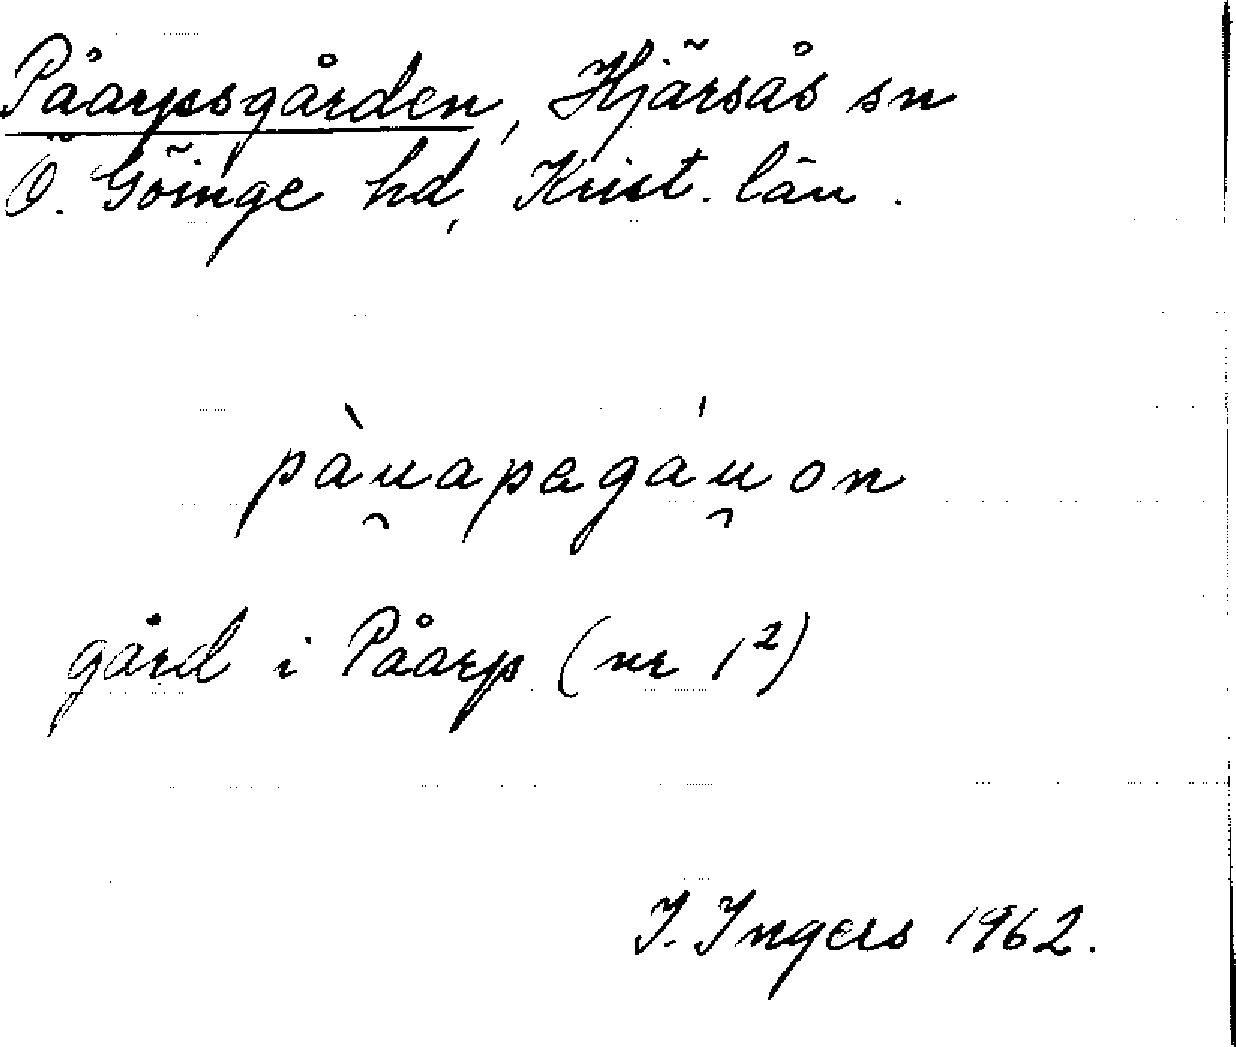 Påarpsgården, Hjärsås sn
Ö. Göinge hd, Krist. län.
pàu̯apagáu̯on
gård i Påarp (nr 1²)
I. Ingers 1962.